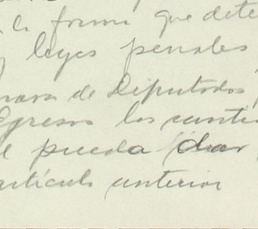 la forma que dete
y leyes penales
mara de Diputados,
Egresos las canti
e pueda dar
artículo anterior